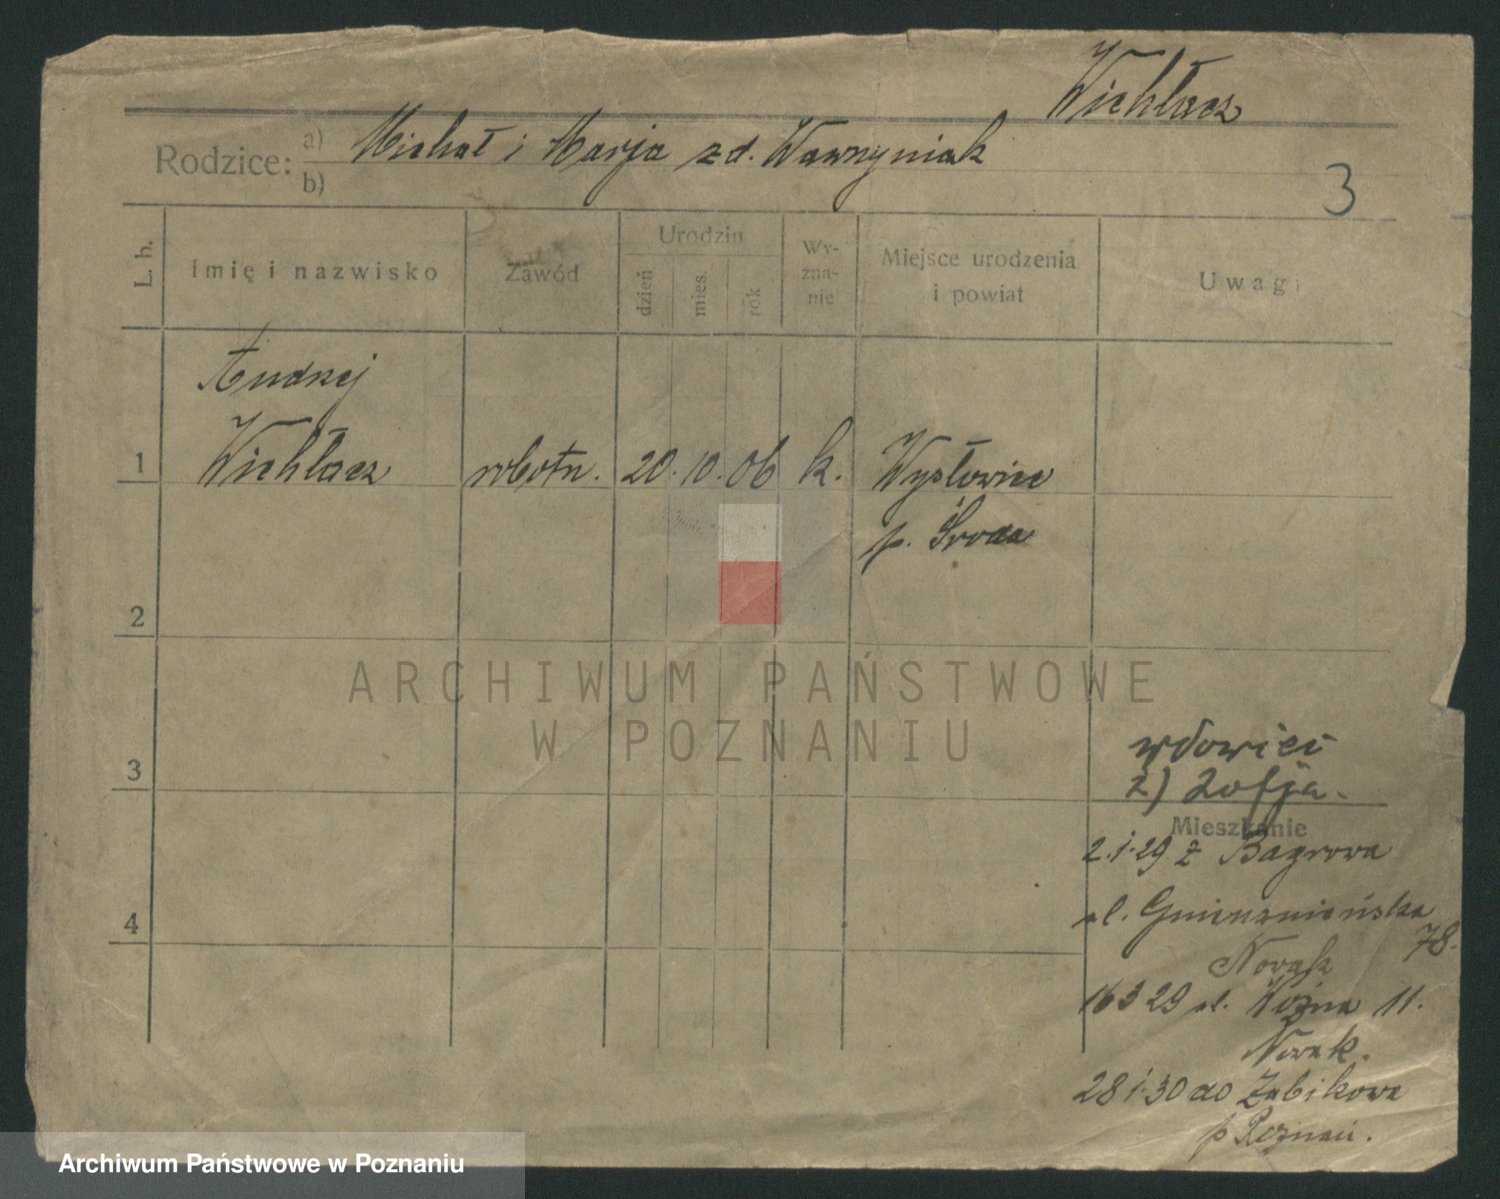 Wichłacz
Rodzice: a) Michał i Marja zd. Wawrzyniak
b)
3
L. b.
Imię i nazwisko
Zawód
Urodzin
dzień
mies.
rok
Wy-
zna-
nie
Miejsce urodzenia
i powiat
Uwagi
Andrzej
1 Wichłacz robotn. 20. 10. 06 k. Wysłowice
p. Środa
2
ARCHIWUM PAŃSTWOWE
W POZNANIU
3
wdowiec
2) Zofja.
Mieszkanie
2.1.29 z Bagrowa
ul. Gnieznieńska
78.
Nowak
16 3 29 ul. Woźna 11.
Nowak.
28 1.30 do Żabikowa
p Poznań.
4
Archiwum Państwowe w Poznaniu